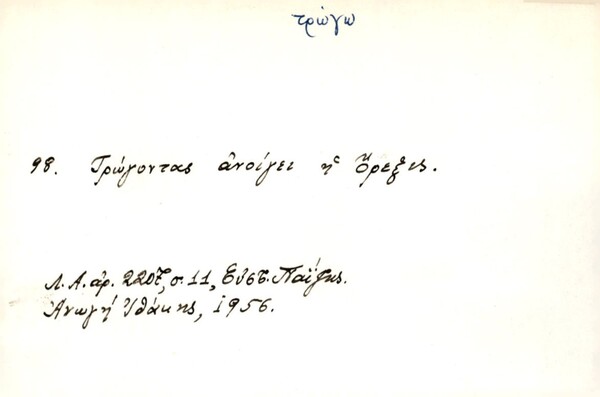 τρώγω
98. Τρώγοντας ἀνοίγει ἡ ὄρεξις.
Λ. Α. ἀρ. 2207, σ. 11, Εὐστ. Παΐζης.
Ἀνωγή Ἰθάκης, 1956.